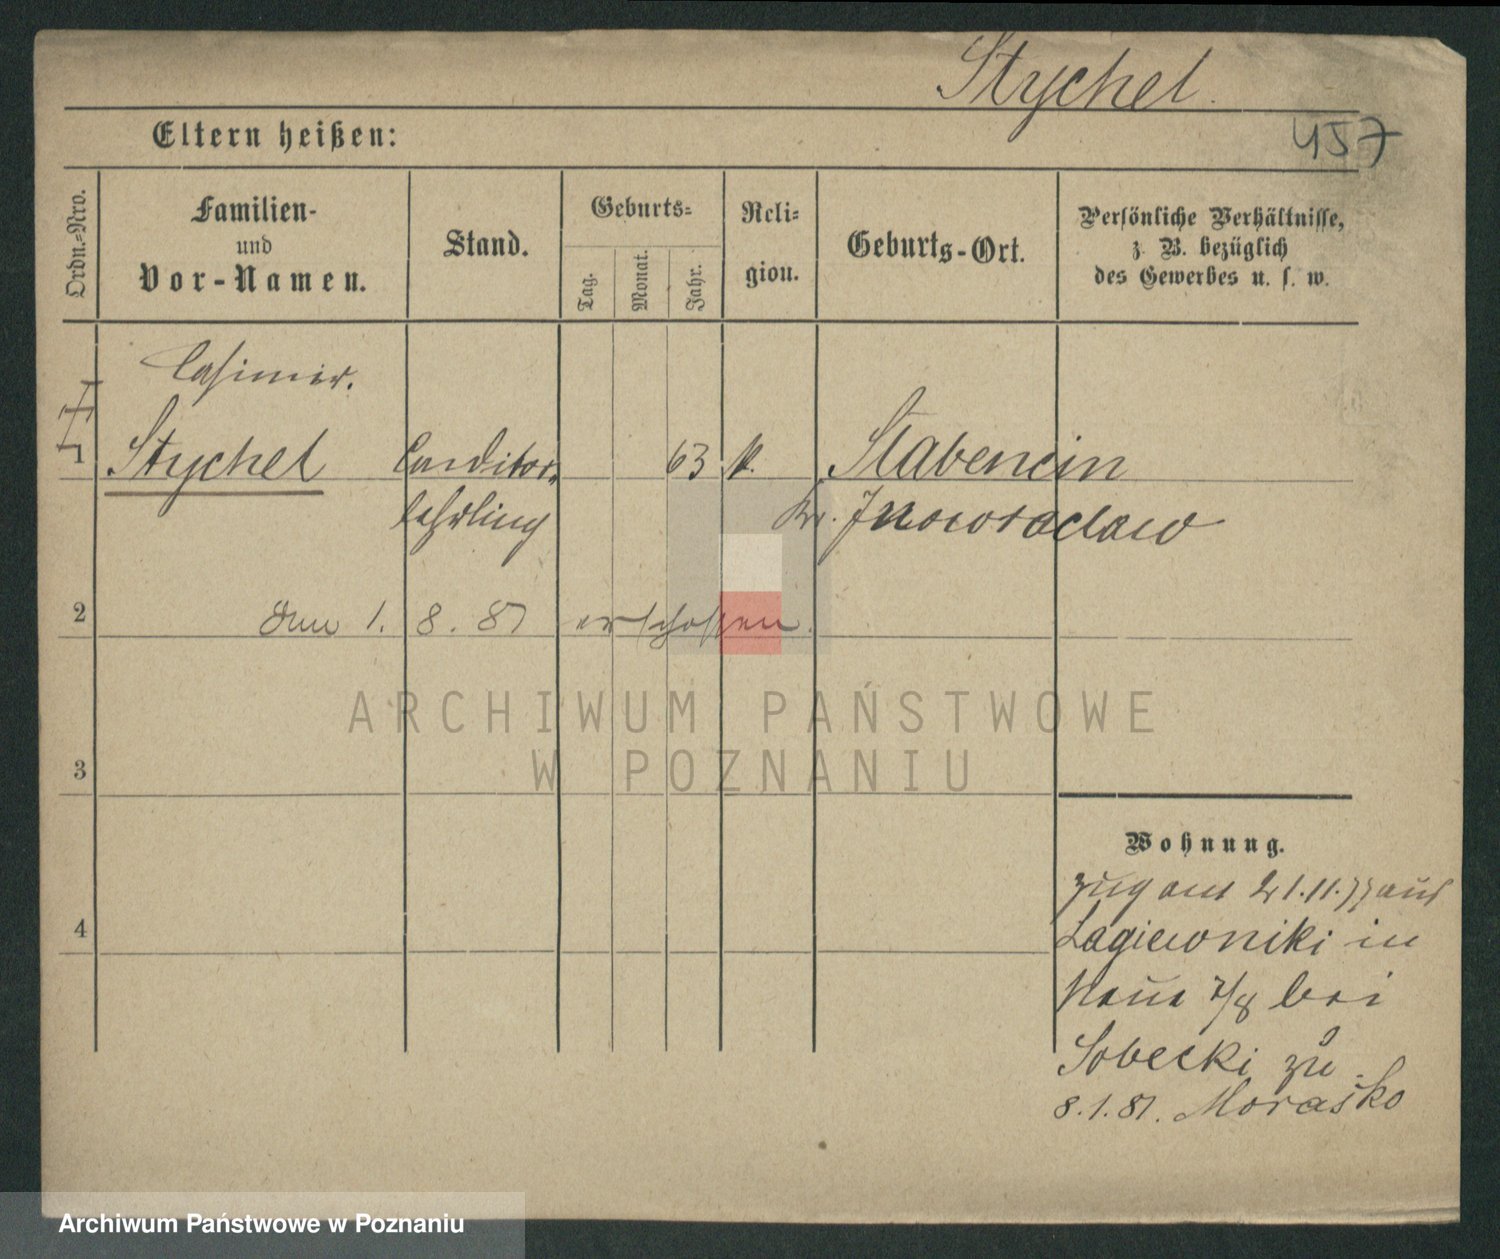 Stychel.
457
Eltern heißen:
Ordn.=Nro.
Familien-
und
Vor-Namen.
Stand.
Geburts=
Tag.
Monat.
Jahr.
Reli=
gion.
Geburts-Ort.
Persönliche Verhältnisse,
z. B. bezüglich
des Gewerbes u. s. w.
Casimir.
1 Stychel Conditor 63 k. Slabencin
lehrling Kr. Inowraclaw
2 den 1. 8. 81 erschossen.
ARCHIWUM PAŃSTWOWE
W POZNANIU
3
Wohnung.
zug am 21.11.77 aus
4 Lagiewniki in
Neue 7/8 bei
Sobecki zu
8.1.81. Morasko
Archiwum Państwowe w Poznaniu